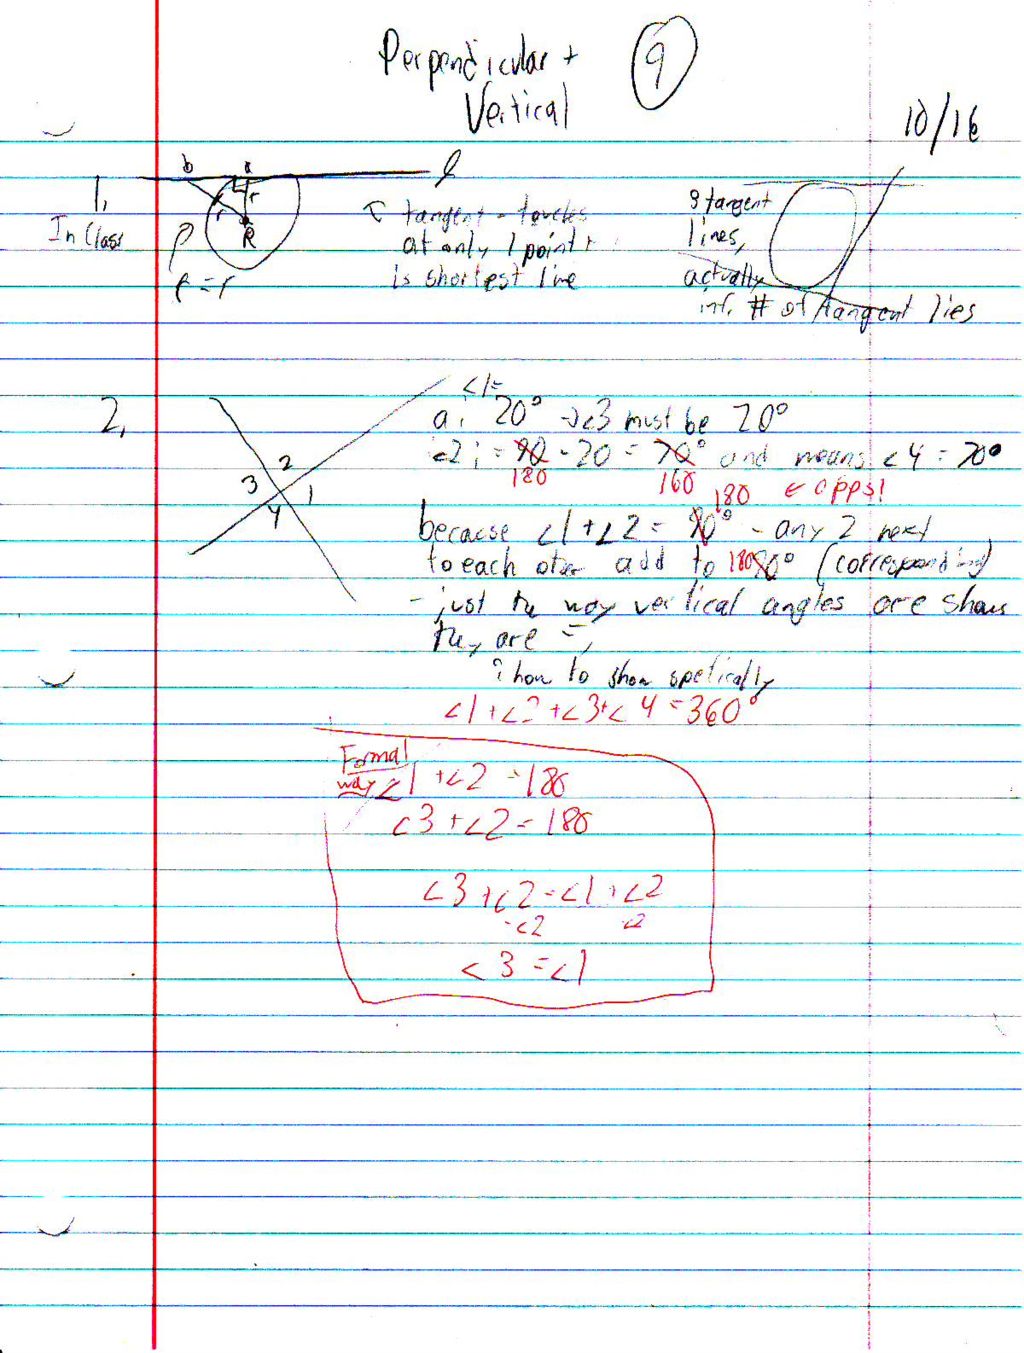 Perpendicular +
Vertical
9
10/16
1.
In Class
b a l
r r
R
tangent - touches
at only 1 point +
is shortest line
3 tangent
lines,
actually
inf. # of tangent lies
2.
2
3 1
4
<1=
a: 20° <3 must be 20°
<2 ; = 90 - 20 = 70° and means <4 = 70°
180 160
180 ← opps!
because <1 + <2 = 90° - any 2 next
to each other add to 180 90° (corresponding)
- just the way vertical angles are show
they are =,
? how to show spetically
<1 + <2 + <3 + <4 = 360°
Formal
way <1 + <2 = 180
<3 + <2 = 180
<3 + <2 = <1 + <2
-<2 -<2
<3 = <1